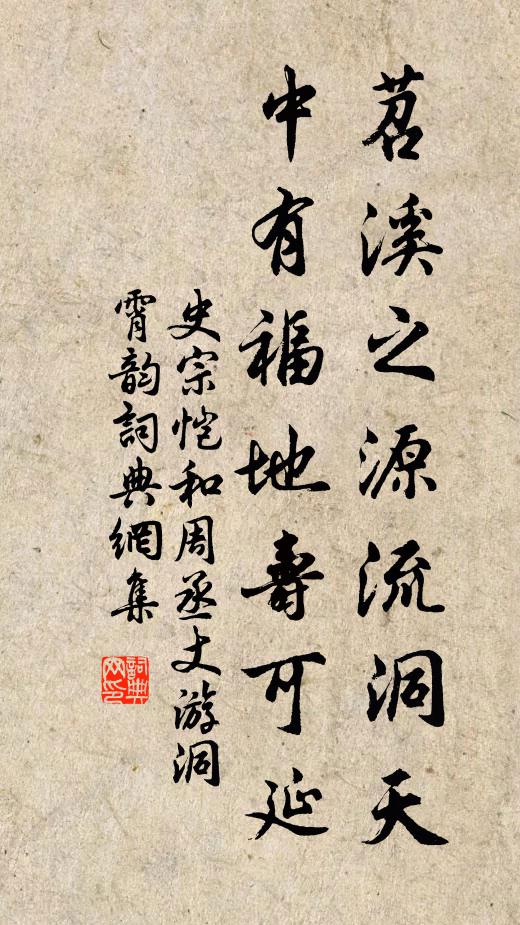 苕溪之源流洞天
中有福地壽可延
史宗恺和周丞丈游洞
霄韵詞典網集
詞典
网印